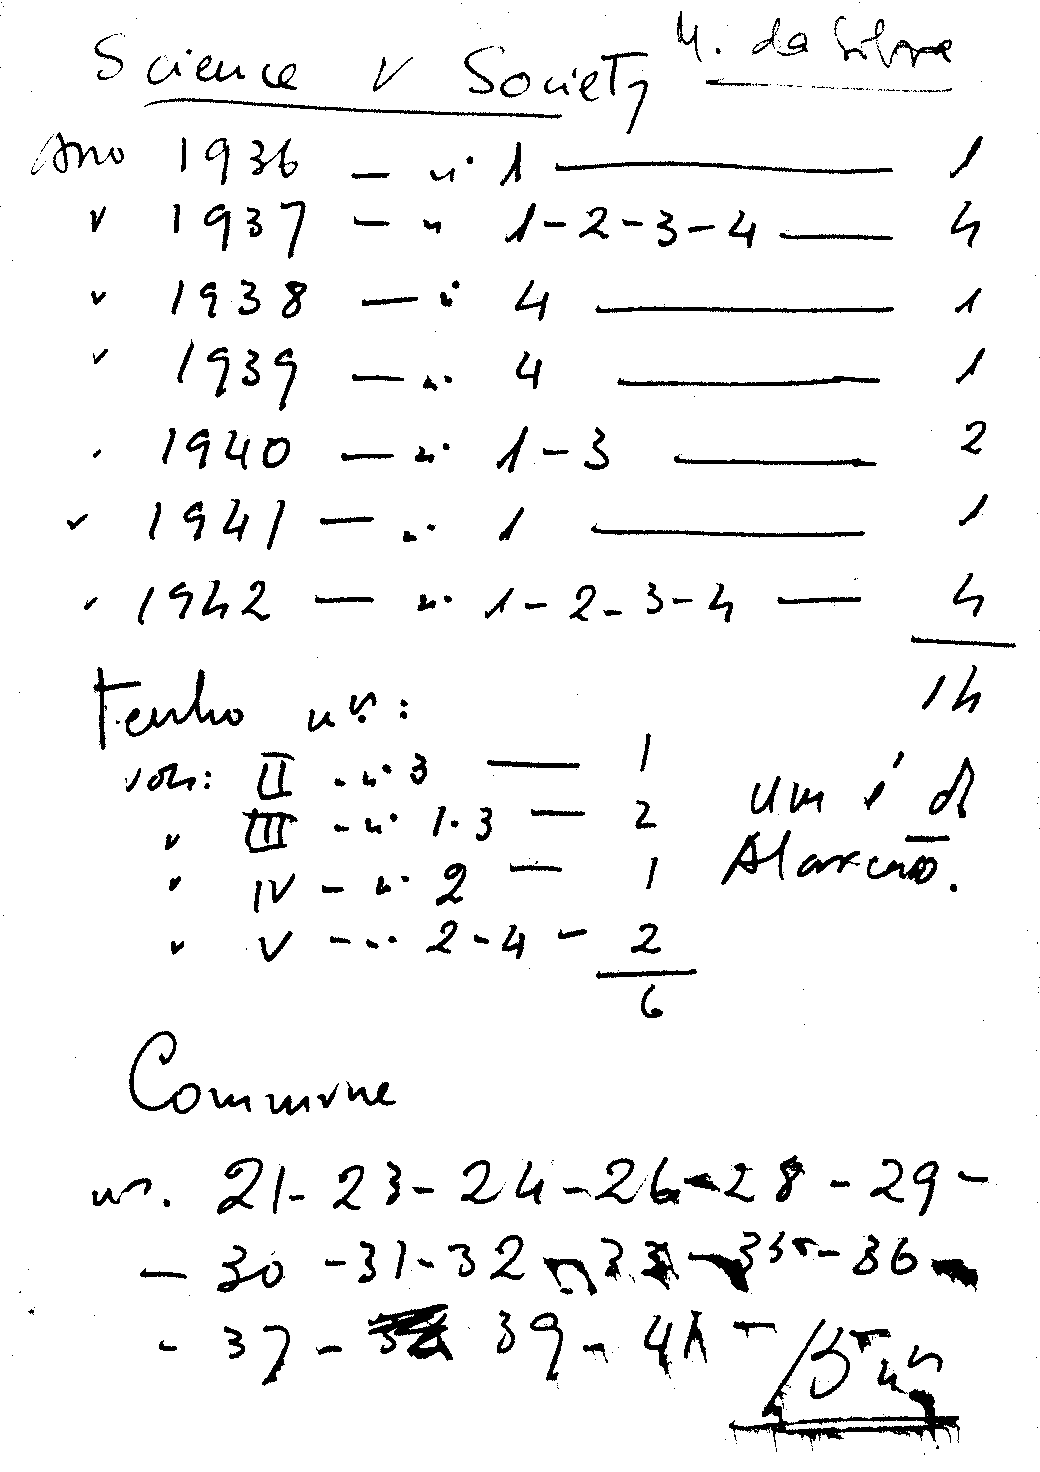 Science v Society M. da Silva
Ano 1936 — nº 1 — 1
" 1937 — " 1-2-3-4 — 4
" 1938 — nº 4 — 1
" 1939 — nº 4 — 1
" 1940 — nº 1-3 — 2
" 1941 — nº 1 — 1
" 1942 — nº 1-2-3-4 — 4
14
Tenho nos:
vol: II - nº 3 — 1
" III - nº 1-3 — 2
" IV - nº 2 — 1
" V - nº 2-4 - 2
6
um é do
Alarcão.
Commune
nos. 21-23-24-26-28-29-
- 30-31-32-33-35-36-
- 37- 39-41-
15 nos